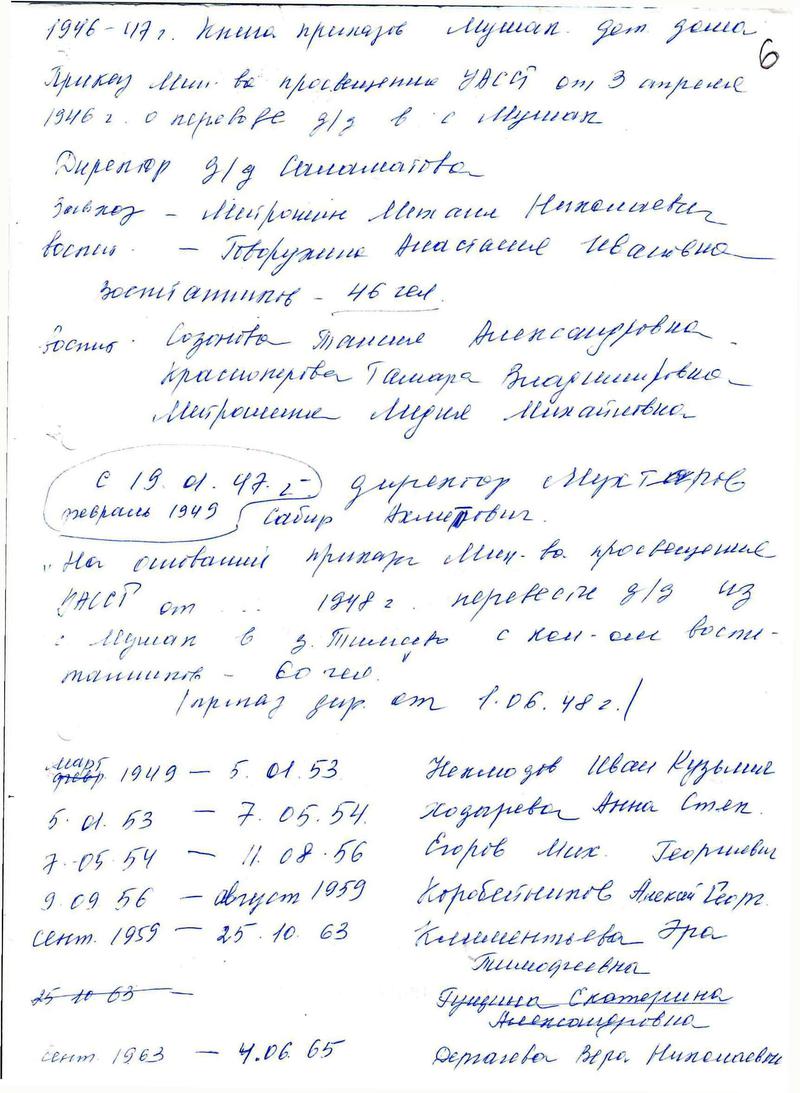 6
1946-47 г. Книга приказов Мушак. дет. дома
Приказ Мин-ва просвещения УАССР от 3 апреля
1946 г. о переводе д/д в с Мушак
Директор д/д Саламатова
Завхоз - Митрошин Михаил Николаевич
воспит. - Говорухина Анастасия Ивановна
Воспитанников - 46 чел.
Воспит. Созонова Таисия Александровна
Красноперова Тамара Владимировна
Митрошина Лидия Михайловна
с 19.01.47 г. директор Мухтаров
февраль 1949 Сабир Ахметович.
"На основании приказа Мин-ва просвещения
УАССР от ... 1948 г. перевести д/д из
с Мушак в д. с кол-ом воспи-
танников - 60 чел.
/приказ дир. от 1.06.48 г./
март
февр 1949 - 5.01.53 Неклюдов Иван Кузьмич
5.01.53 - 7.05.54. Ходырева Анна Степ.
7.05.54 - 11.08.56 Егоров Мих. Георгиевич
9.09.56 - август 1959 Коробейников Алексей Георг.
сент. 1959 - 25.10.63 Климентьева Эра
Тимофеевна
25 10 63 - Гущина Екатерина
Александровна
сент. 1963 - 4.06.65 Дергачева Вера Николаевна